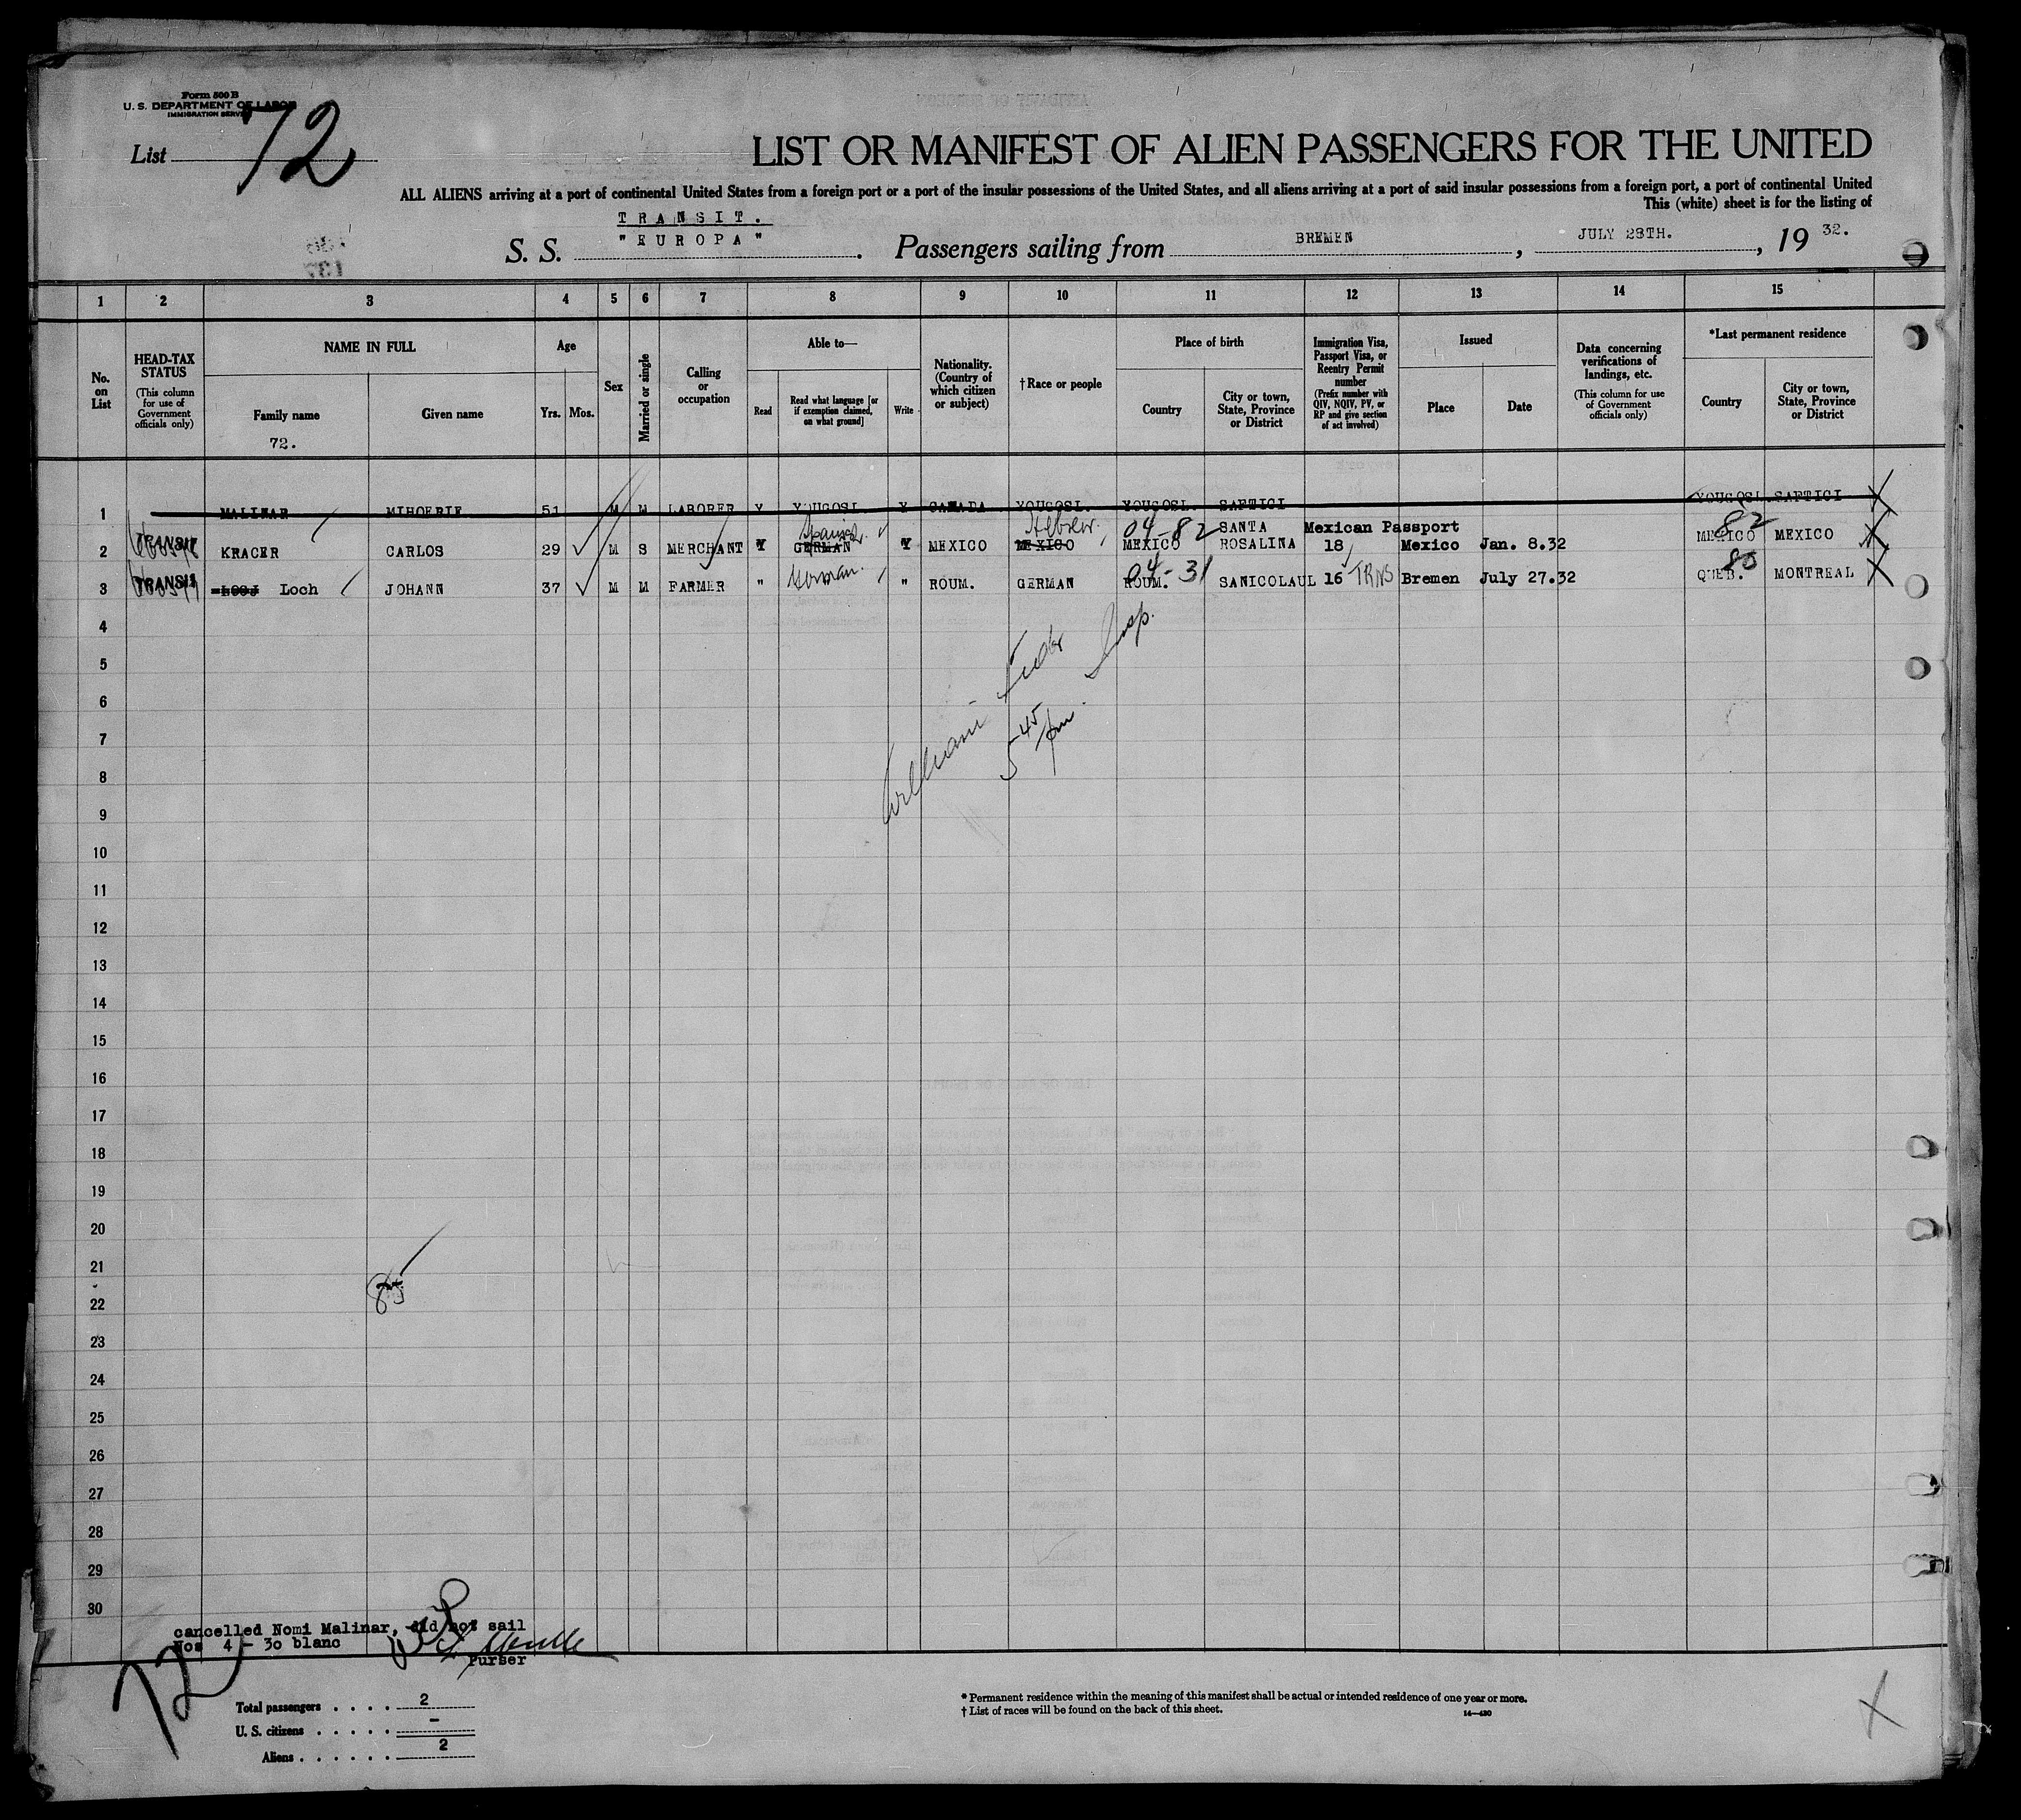 Form 500 B
U. S. DEPARTMENT OF LABOR
IMMIGRATION SERVICE
List 72
LIST OR MANIFEST OF ALIEN PASSENGERS FOR THE UNITED
ALL ALIENS arriving at a port of continental United States from a foreign port or a port of the insular possessions of the United States, and all aliens arriving at a port of said insular possessions from a foreign port, a port of continental United
This (white) sheet is for the listing of
TRANSIT.
S. S. "EUROPA". Passengers sailing from BREMEN, JULY 28TH., 19 32.
1 2 3 4 5 6 7 8 9 10 11 12 13 14 15
No. on List
HEAD-TAX STATUS
(This column for use of Government officials only)
NAME IN FULL
Family name
72.
Given name
Age
Yrs. Mos.
Sex
Married or single
Calling or occupation
Able to—
Read
Read what language [or if exemption claimed, on what ground]
Write
Nationality. (Country of which citizen or subject)
†Race or people
Place of birth
Country
City or town, State, Province or District
Immigration Visa, Passport Visa, or Reentry Permit number
(Prefix number with QIV, NQIV, PV, or RP and give section of act involved)
Issued
Place
Date
Data concerning verifications of landings, etc.
(This column for use of Government officials only)
*Last permanent residence
Country
City or town, State, Province or District
1 MALINAR MIHOERIE 51 M M LABORER Y YOUGOSL Y CANADA YOUGOSL. YOUGOSL. SAFTICI YOUGOSL. SAFTICI
2 TRANSIT KRACER CARLOS 29 M S MERCHANT Y GERMAN Spanish Y MEXICO MEXICO Hebrew. 04-82 MEXICO SANTA ROSALINA Mexican Passport 18 Mexico Jan. 8.32 82 MEXICO MEXICO
3 TRANSIT Loch JOHANN 37 M M FARMER " German. " ROUM. GERMAN 04-31 ROUM. SANICOLAUL 16 TRNS Bremen July 27.32 80 QUEB. MONTREAL
4
5
William Insp.
6
7
5 45 pm
8
9
10
11
12
13
14
15
16
17
18
19
20
21
22
23
24
25
26
27
28
29
30
cancelled No1 Malinar, did not sail
Nos 4 - 30 blanc
Purser
72
Total passengers . . . . 2
U. S. citizens . . . . . -
Aliens . . . . . . 2
* Permanent residence within the meaning of this manifest shall be actual or intended residence of one year or more.
† List of races will be found on the back of this sheet.
14—430